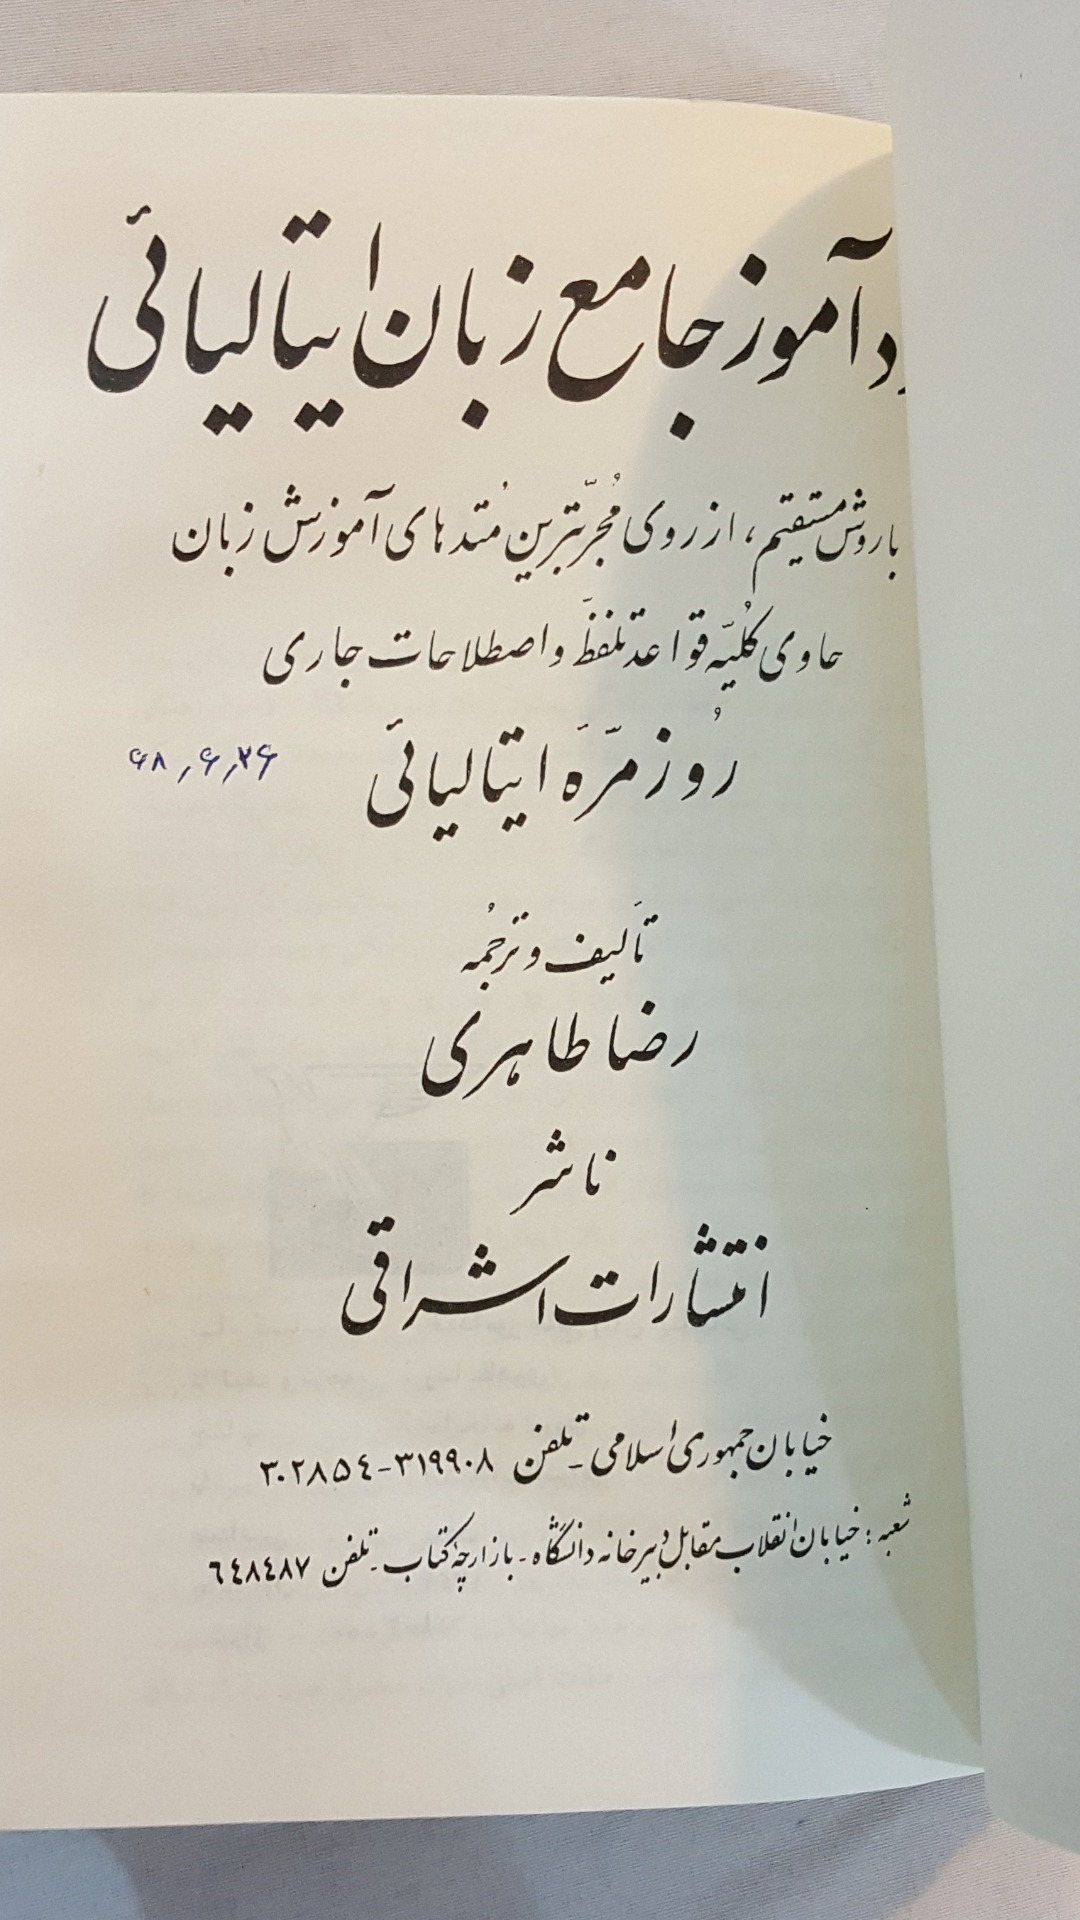 د آموز جامع زبان ایتالیائی
با روش مستقیم، از روی مُجرّبترین مُتدهای آموزش زبان
حاوی کُلیّه قواعد تلفظَّ و اصطلاحات جاری
رُوزمرّه ایتالیائی
۶۸٫۶٫۲۶
تألیف و ترجُمه
رضا طاهری
ناشر
انتشارات اشراقی
خیابان جمهوری اسلامی - تلفن ۳۱۹۹۰۸-۳۰۲۸۵٤
شعبه: خیابان انقلاب مقابل دبیرخانه دانشگاه - بازارچهٔ کتاب - تلفن ٦٤٨٤٨٧